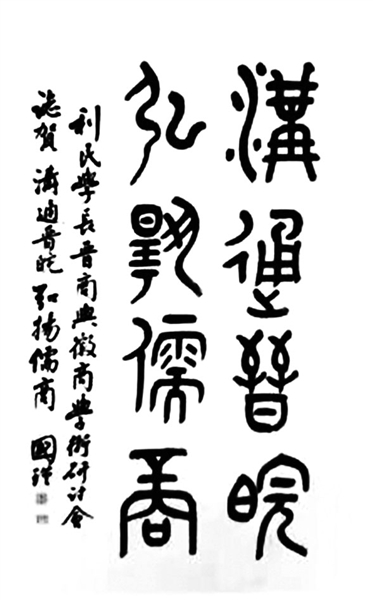 溝通晉皖
弘揚儒商
利民學長晉商與徽商學術研討會
誌賀 溝通晉皖 弘揚儒商 國璋